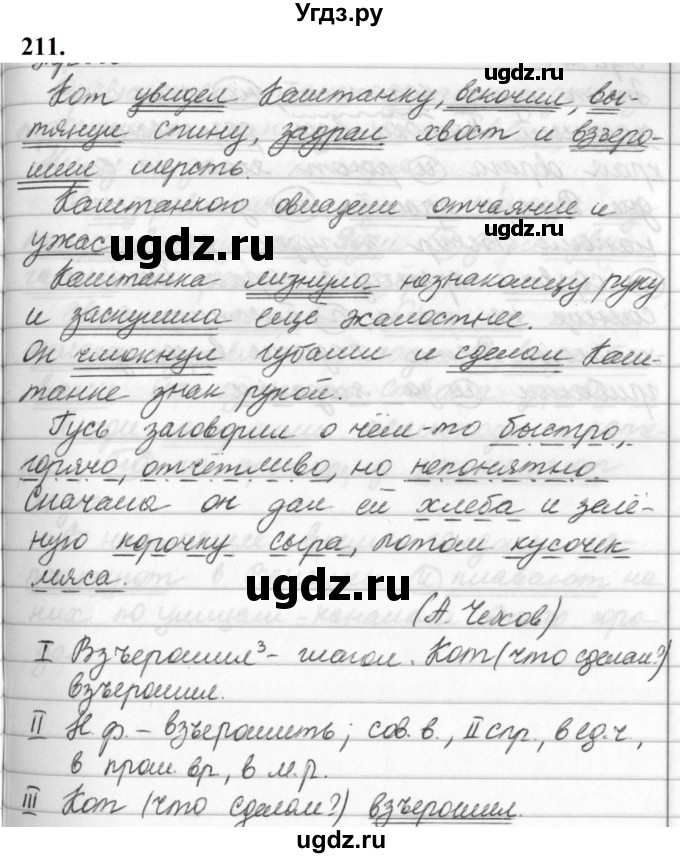 Угдз.ру
211.
Кот увидел Каштанку, вскочил, вы-
тянул спину, задрал хвост и взъеро-
шил шерсть.
Каштанкою овладели отчаяние и
ужас
Каштанка лизнула незнакомцу руку
и заскулила ещё жалостнее.
Он чмокнул губами и сделал Каш-
танке знак рукой.
Гусь заговорил о чём-то быстро,
горячо, отчётливо, но непонятно
Сначала он дал ей хлеба и зелё-
ную корочку сыра, потом кусочек
мяса.
(А. Чехов)
I Взъерошил³ - глагол. Кот (что сделал?)
взъерошил.
II Н.ф. - взъерошить; сов. в., II спр., в ед.ч.,
в прош. вр, в м.р.
III Кот (что сделал?) взъерошил.
ugdz.ru
ugdz.ru
ugdz.ru
ugdz.ru
ugdz.ru
ugdz.ru
ugdz.ru
ugdz.ru